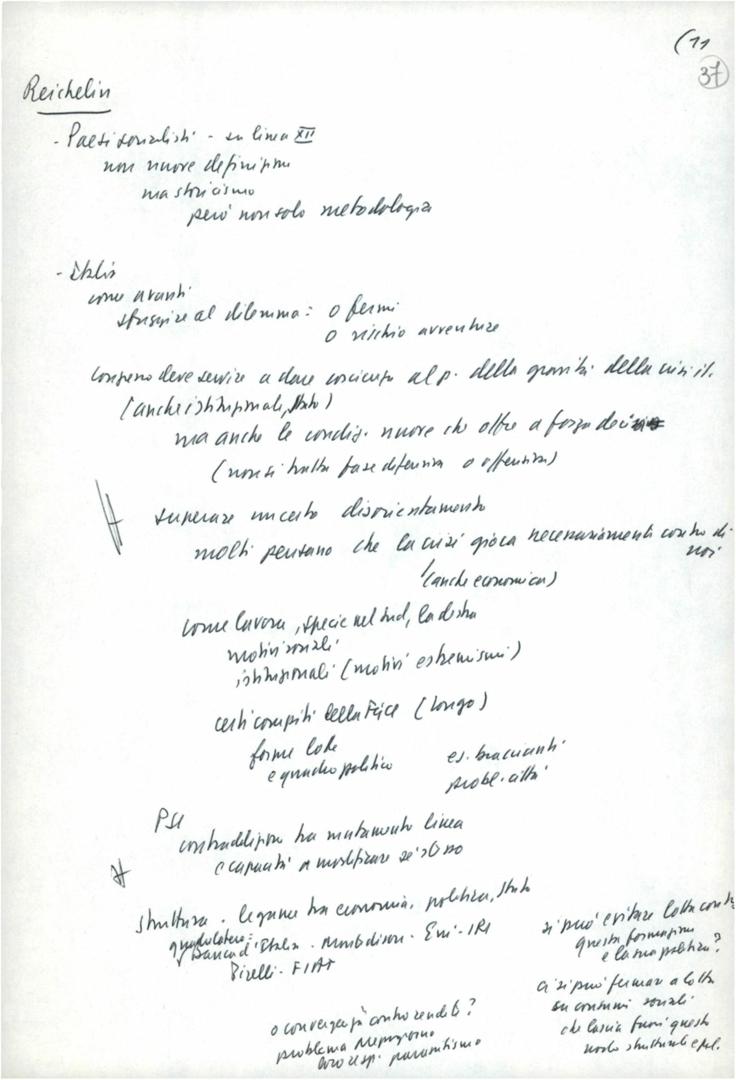 (11
37
Reichelin
- Paesi socialisti - su linea XII
non nuove definizioni
ma storicismo
però non solo metodologia
- Italia
come avanti
sfuggire al dilemma: o fermi
o rischio avventure
congresso deve servire a dare coscienza al p. della gravità della crisi it.
(anche istituzionali, Stato)
ma anche le condiz. nuove che offre a forza
(non si tratta fase difensiva o offensiva)
superare un certo disorientamento
molti pensano che la crisi gioca necessariamente contro di
noi
(anche economica)
come lavora, specie nel Sud, la destra
motivi sociali
istituzionali (motivi estremismi)
certi compiti della Fgce (Longo)
forme lotte
e quadro politico
es. braccianti
probl. città
PSI
contraddizione tra mutamento linea
e capacità a modificare sé stesso
struttura - legame tra economia, politica, Stato
quadrilatero:
Banca d'Italia - Montedison - Eni - IRI
Pirelli - FIAT
si può evitare lotta contro
questa formazione
e la sua politica?
ci si può fermare a lotta
su consumi sociali
che lascia fuori questo
nodo strutturale e pol.
o convergenza contro rendite?
problema Mezzogiorno
loro risp. parassitismo